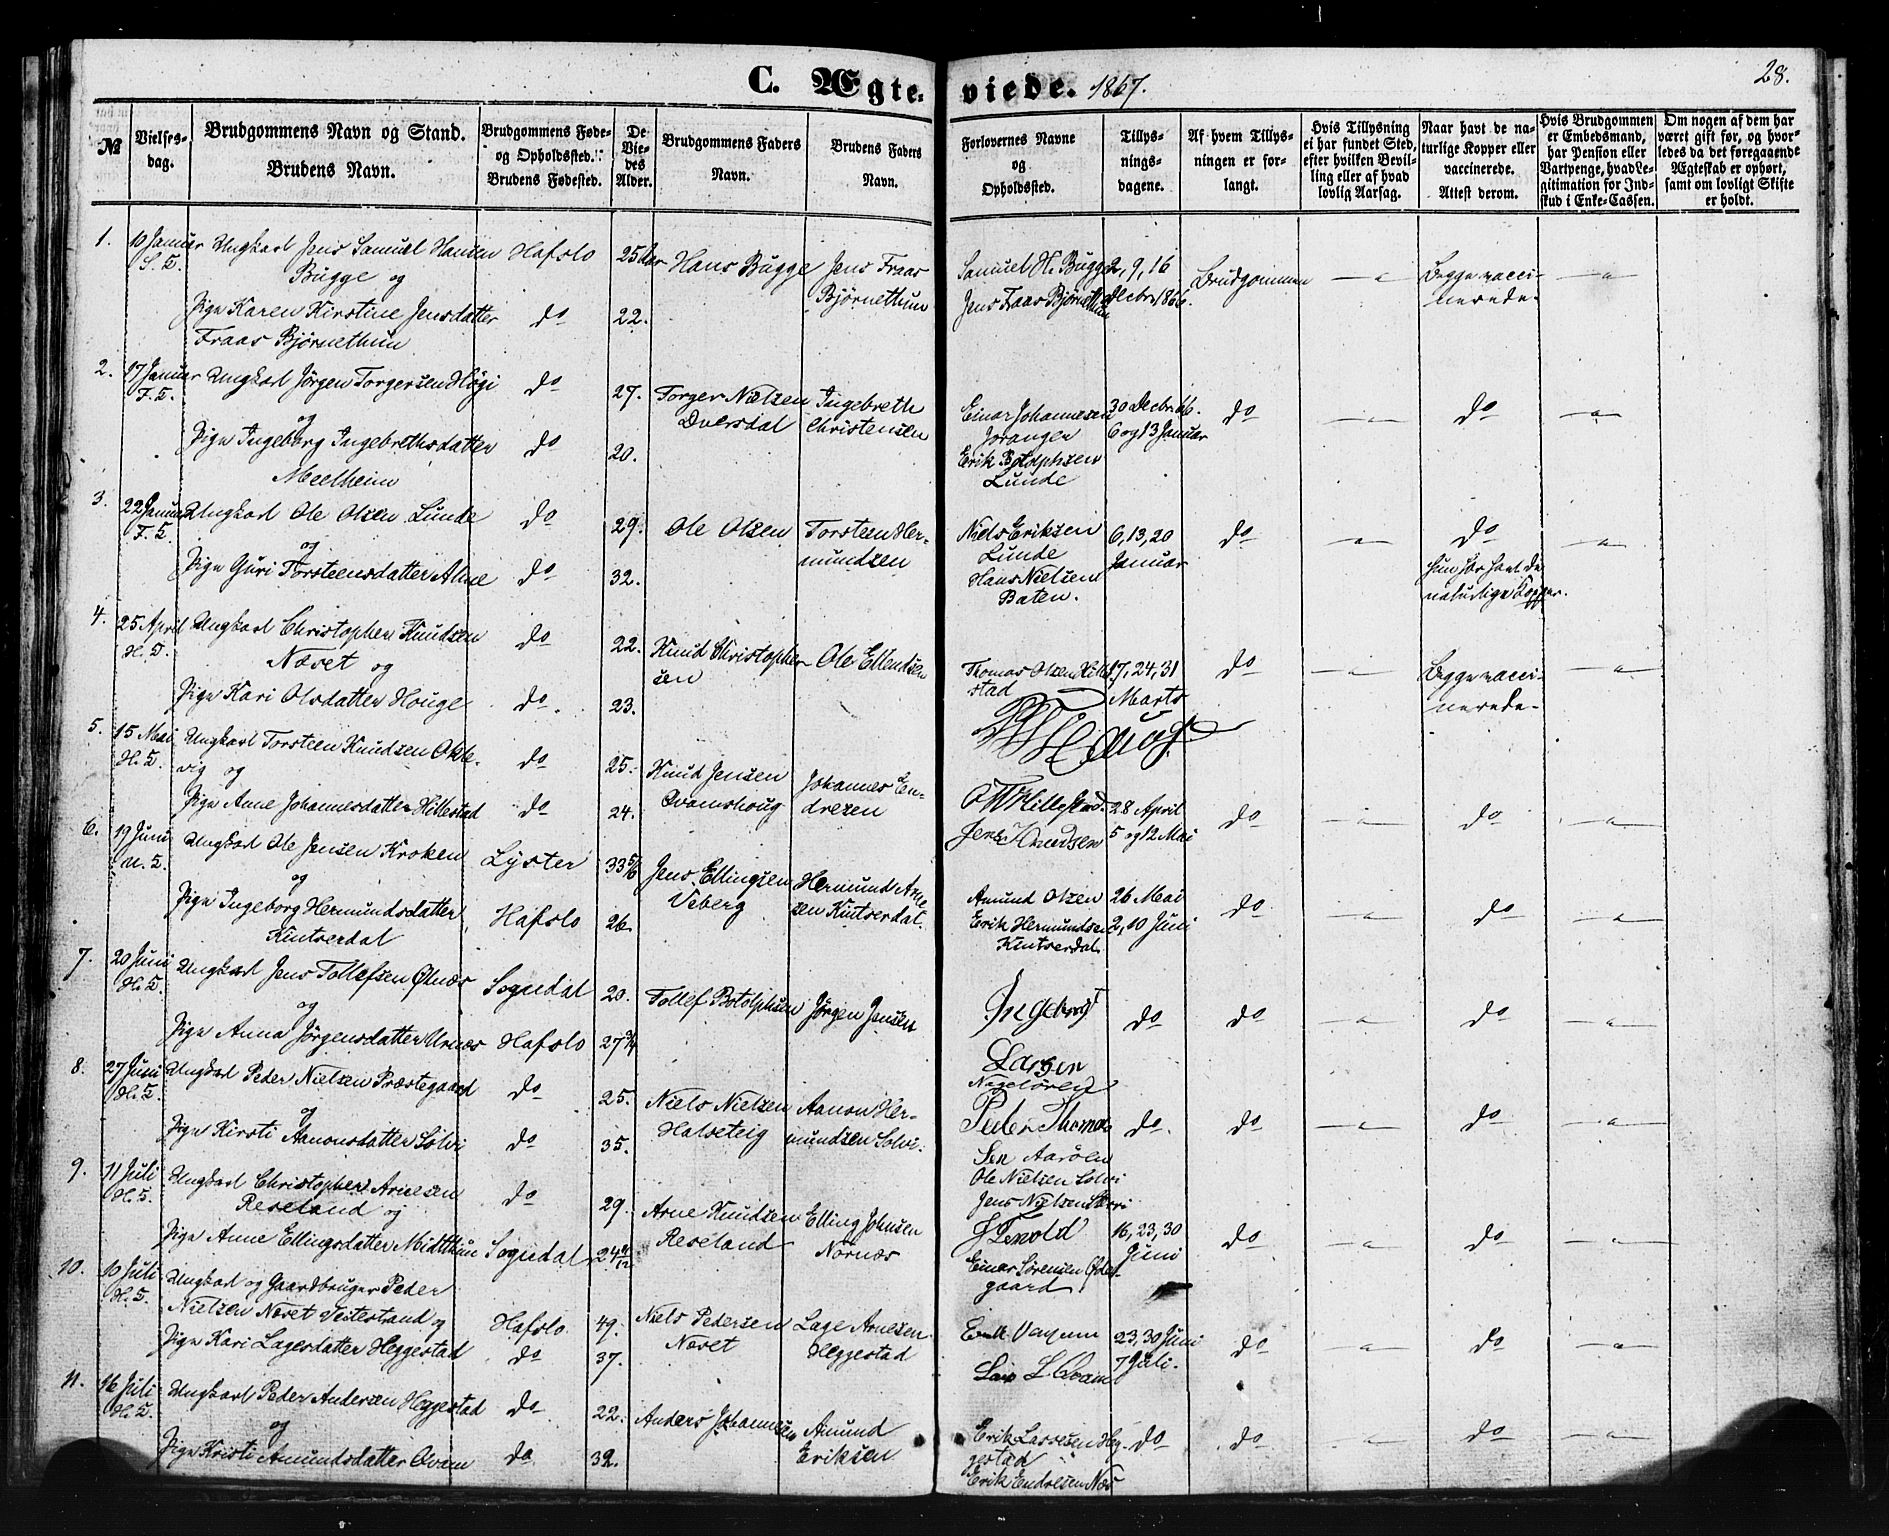 C. Ægteviede. 1867.
28.
№
Vielsesdag.
Brudgommens Navn og Stand.
Brudens Navn.
Brudgommens Føde- og Opholdssted.
Brudens Fødested.
De Viedes Alder.
Brudgommens Faders Navn.
Brudens Faders Navn.
Forlovernes Navne og Opholdssted.
Tillysningsdagene.
Af hvem Tillysningen er forlangt.
Hvis Tillysning ei har fundet Sted, efter hvilken Bevilling eller af hvad lovlig Aarsag.
Naar havt de naturlige Kopper eller vaccinerede. Attest derom.
Hvis Brudgommen er Embedsmand, har Pension eller Vartpenge, hvad Legitimation for Indskud i Enke-Cassen.
Om nogen af dem har været gift før, og hvorledes da det foregaaende Ægteskab er ophørt, samt om lovligt Skifte er holdt.
1. 10 Januar Ungkarl Jens Samuel Hansen Bugge og Hafslo 25 Aar Hans Bugge Jens Fraas Bjørnethun Samuel H. Bugge 2, 9, 16 Decbr 1866. Brudgommen Begge vaccinerede
Pige Karen Kirstine Jensdatter Fraas Bjørnethun do 22. Jens Fraas Bjørnethun
2. 17 Januar Ungkarl Jørgen Torgersen Høgi do 27. Torger Nielsen Dversdal Ingebreth Christensen Einar Johannesen Jorangen 30 Decbr 66. 6 og 13 Januar do do
og
Pige Ingeborg Ingebrethsdatter Meelheim do 20. Erik Botolphsen Lunde
3. 22 Januar Ungkarl Ole Olsen Lunde do 29. Ole Olsen Torsteen Hermundsen Niels Eriksen Lunde 6, 13, 20 Januar do do
og
Pige Guri Torsteensdatter Alme do 32. Hans Nielsen Baten. hun har havt de naturlige Kopper.
4. 25 April Ungkarl Christopher Knudsen Næset og do 22. Knud Christophersen Ole Ellendsen Thomas Olsen Hillestad 17, 24, 31 Marts do Begge vaccinerede
Pige Kari Olsdatter Houge do 23.
5. 15 Mai Ungkarl Torsteen Knudsen Oklevig og do 25. Knud Jensen Qvamshoug Johannes Endresen Hillestad 28 April 5 og 12 Mai do do
Pige Anne Johannesdatter Hillestad do 24. Jens Knudsen
6. 19 Juni Ungkarl Ole Jensen Kroken Lyster 33 5/6 Jens Ellingsen Veberg Hermund Arnesen Kintserdal. Amund Olsen 26 Mai 2, 10 Juni do do
og
Pige Ingeborg Hermundsdatter Kintserdal Hafslo 26. Erik Hermundsen Kintserdal
7. 20 Juni Ungkarl Jens Tollefsen Ølnæs Sogndal 20. Tollef Botolphsen Jørgen Jensen do do do
og
Pige Anna Jørgensdatter Urnæs Hafslo 27 Larsen
8. 27 Juni Ungkarl Peder Nielsen Præstegaard do 25. Niels Nielsen Halseteig Aanon Hermundsen Solvi. Peder Thomassen Aarølen do. do do
og
Pige Kirsti Aanonsdatter Solvi do 35. Ole Nielsen Solvi
Jens Nielsen
9. 11 Juli Ungkarl Christopher Arnesen Reseland og do 29. Arne Knudsen Reseland Elling Johnsen Nornæs 16, 23, 30 Juni do do
Pige Anne Ellingsdatter Midtthun Sogndal 24 Einar Sørensen Ødegaard
10. 10 Juli Ungkarl og Gaardbruger Peder Nielsen Næset Veitestrand og Hafslo 49. Niels Pedersen Næset Lage Arnesen Heggestad 23, 30 Juni 7 Juli. do do
Pige Kari Lagesdatter Heggestad do 37.
11. 16 Juli Ungkarl Peder Andersen Heggestad do 22. Anders Johannesen Amund Eriksen Erik Lassesen Heggestad do do do
og
Pige Kristi Amundsdatter Qvam do 32. Erik Endresen Næs